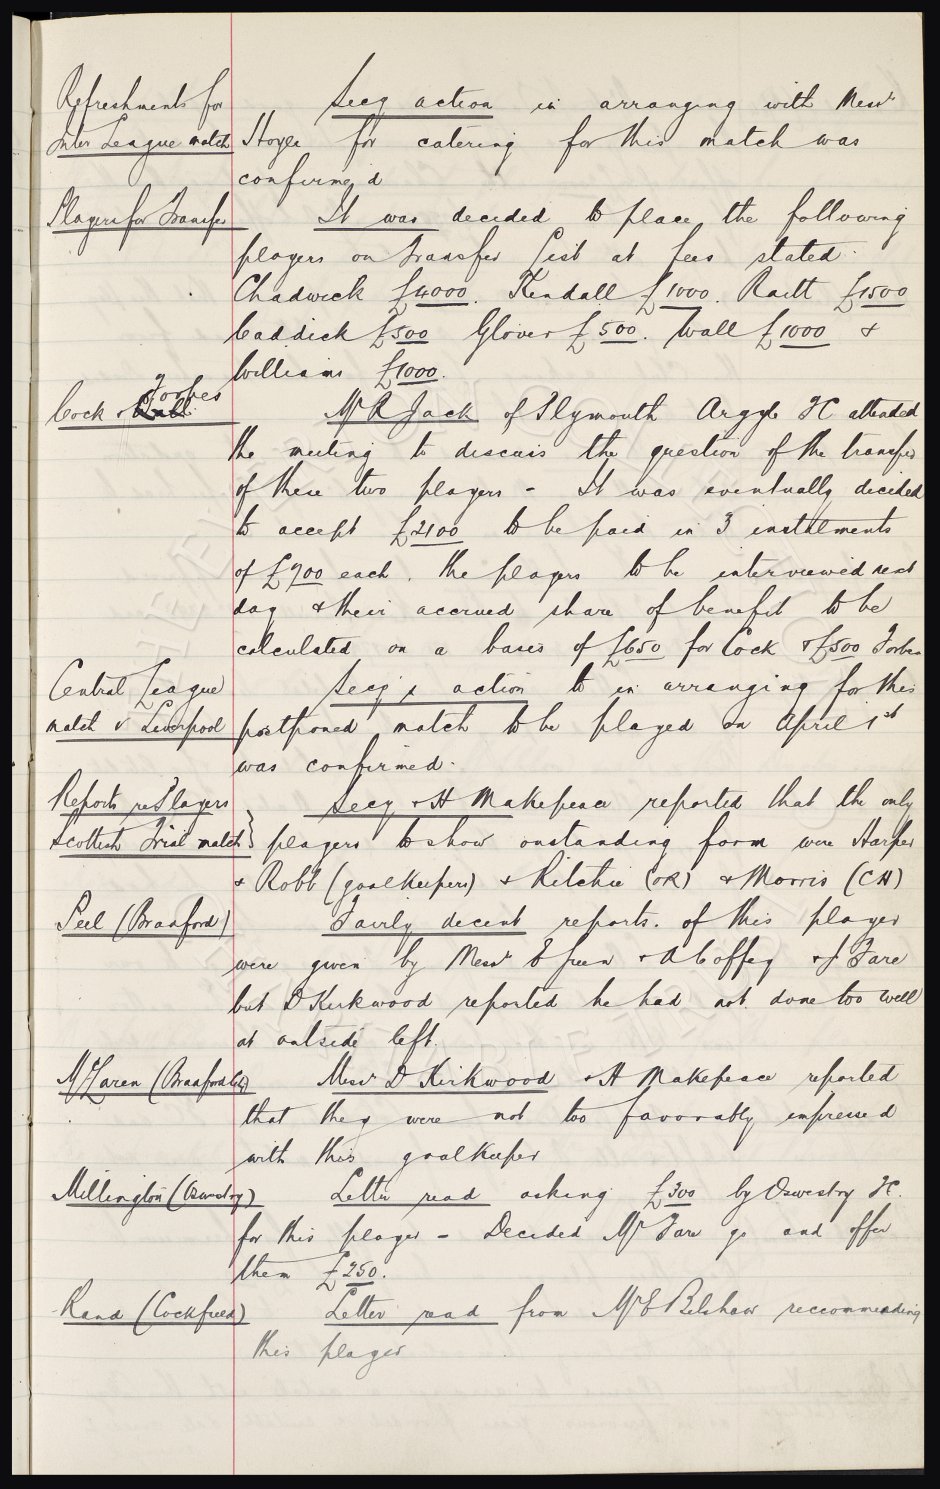 Refreshments for
Inter League match
Secy action in arranging with Messrs
Hoyle for catering for this match was
confirmed
Players for Transfer
It was decided to place the following
players on Transfer List at fees stated.
Chadwick £4000. Kendall £1000. Raitt £1500
Caddick £500 Glover £500. Wall £1000 &
Williams £1000.
Cock & Forbes
Mr R Jack of Plymouth Argyle FC attended
the meeting to discuss the question of the transfer
of these two players - It was eventually decided
to accept £2100 to be paid in 3 instalments
of £700 each. The players to be interviewed next
day & their accrued share of benefit to be
calculated on a basis of £650 for Cock & £500 Forbes
Central League
match v Liverpool
Secy's action to in arranging for this
postponed match to be played on April 1st
was confirmed.
Reports re Players
Scottish Trial match
Secy & H Makepeace reported that the only
players to show outstanding form were Harper
& Robb (goalkeepers) & Ritchie (OR) & Morris (CH)
Peel (Bradford)
Fairly decent reports. of this player
were given by Messrs E Green & A Coffey & J Fare
but D Kirkwood reported he had not done too well
at outside left.
McLaren (Bradford City)
Messrs D Kirkwood & H Makepeace reported
that they were not too favorably impressed
with this goalkeeper
Millington (Oswestry)
Letter read asking £300 by Oswestry FC.
for this player - Decided Mr Fare go and offer
them £250.
Rand (Cockfield)
Letter read from Mr E Belshaw reccommending
this player